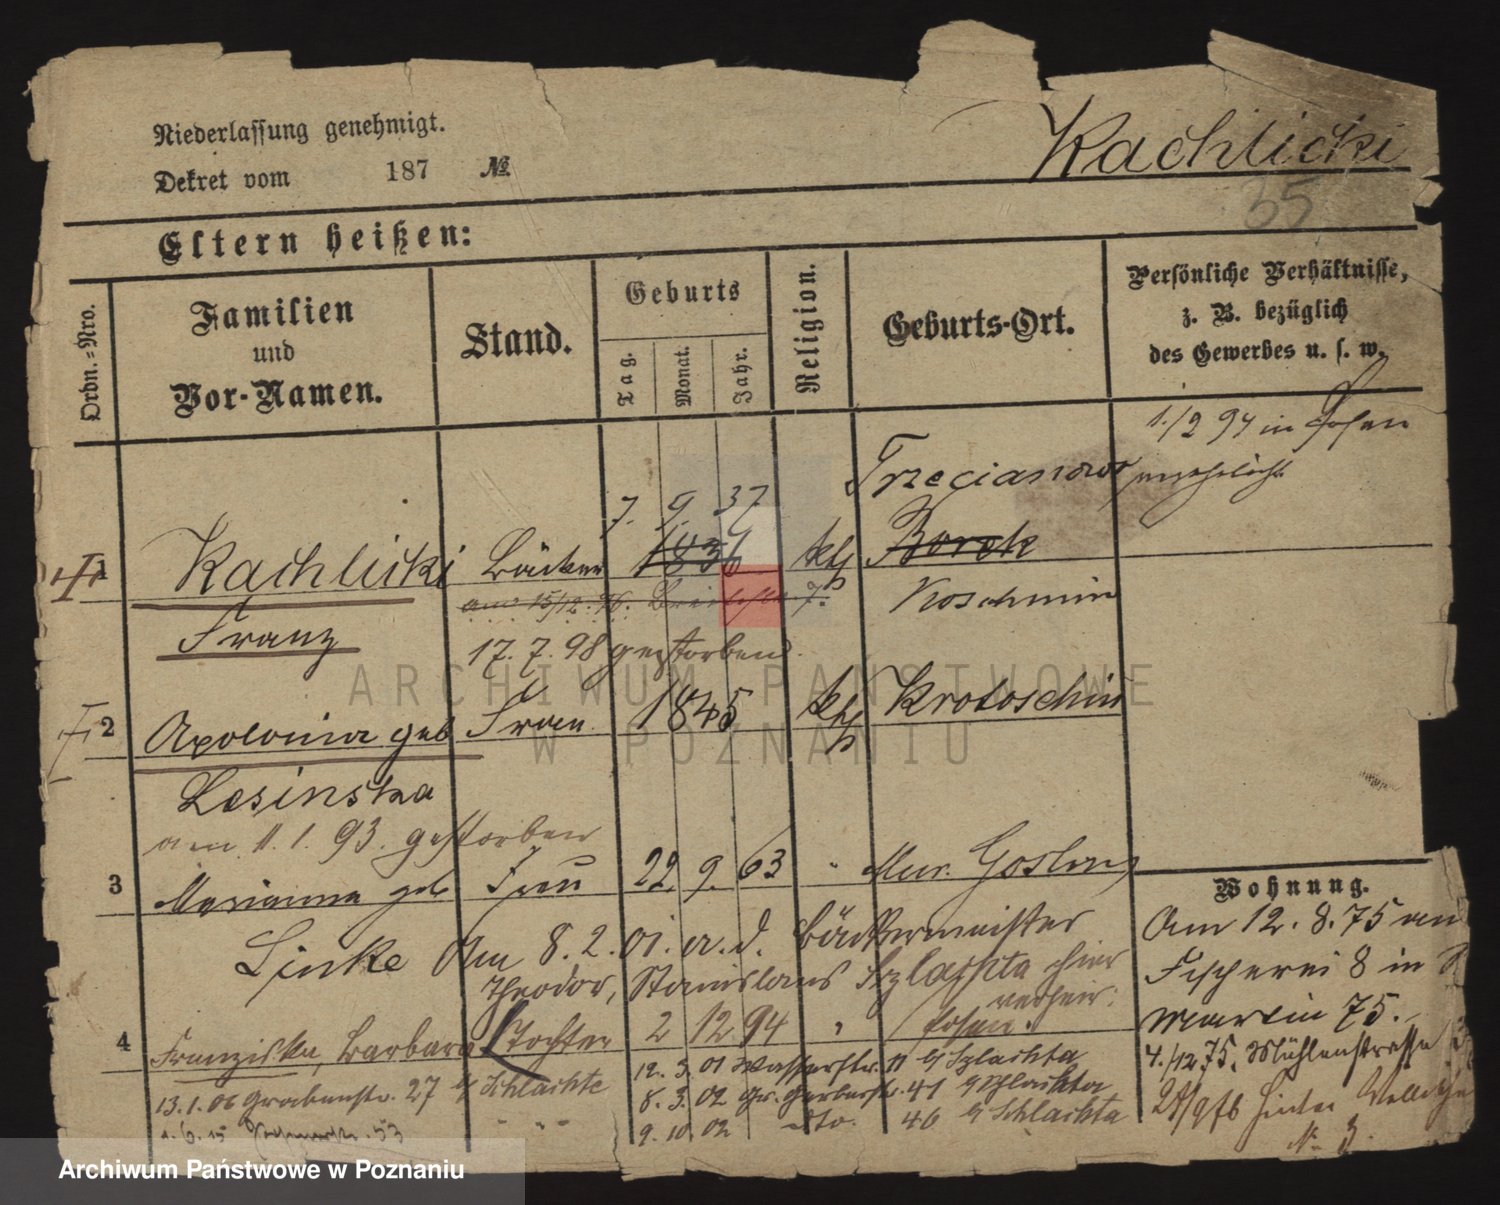 Niederlassung genehmigt.
Dekret vom 187 №
Kachlicki
35
Eltern heißen:
Ordn.=Nro.
Familien
und
Vor-Namen.
Stand.
Geburts
Tag.
Monat.
Jahr.
Religion.
Geburts-Ort.
Persönliche Verhältnisse,
z. B. bezüglich
des Gewerbes u. s. w.
1./2 94 in Posen
verehelicht
7. 9. 37 Trzecianowo
1 Kachlicki Bäcker 1836 kth Borek
am 15/12. 76. Koschmin
Franz
17. 7. 98 gestorben.
2 Apolonia geb Frau 1845 kth Krotoschin
Lesinska
am 11. 1. 93. gestorben
3 Marianna geb Frau 22. 9. 63 " Mur. Goslin
Linke Am 8. 2. 01. a. d. Bäckermeister
Theodor, Stanislaus Szlapka hier
verheir:
4 Franziska, Barbara Tochter 2 12 94 " Posen.
12. 3. 01 Wasserstr. 11 b/ Szlachta
13. 1. 06 Grabenstr. 27 b/ Schlachte
8. 3. 02 Gr. Gerberstr. 41 b/ Schlachta
9. 10. 02 dto. 46 b/ Schlachta
1. 6. 15 53
Wohnung.
Am 12. 8. 75 von
Fischerei 8 in St
Martin 75.
4./12 75. Mühlenstrasse
28/9 76 Hinter Wallischei
№ 3.
ARCHIWUM PAŃSTWOWE
W POZNANIU
Archiwum Państwowe w Poznaniu